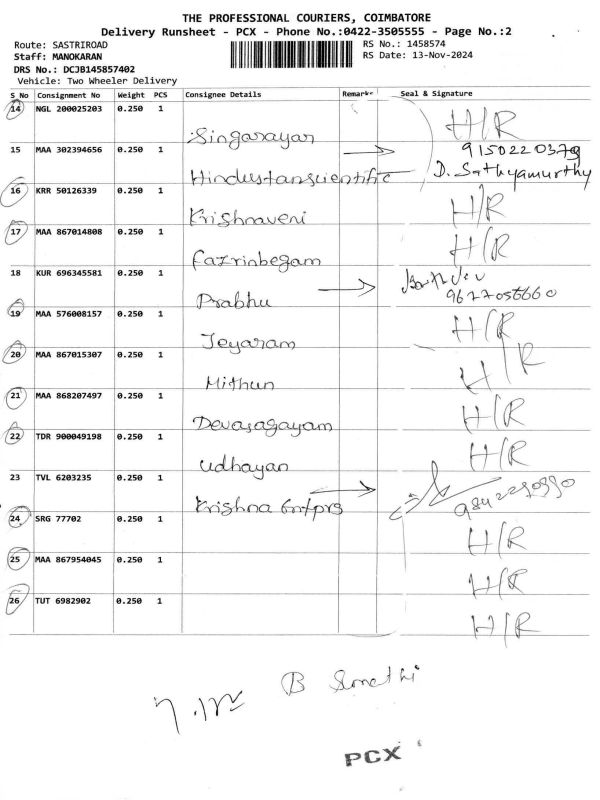 THE PROFESSIONAL COURIERS, COIMBATORE
Delivery Runsheet - PCX - Phone No.:0422-3505555 - Page No.:2
Route: SASTRIROAD RS No.: 1458574
Staff: MANOKARAN RS Date: 13-Nov-2024
DRS No.: DCJB145857402
Vehicle: Two Wheeler Delivery
S_No Consignment No Weight PCS Consignee Details Remarks Seal & Signature
14 NGL 200025203 0.250 1
Singarayar H/R
15 MAA 302394656 0.250 1 9150220379
Hindustanscientific D. Sathyamurthy
16 KRR 50126339 0.250 1
Krishnaveni H/R
17 MAA 867014808 0.250 1
Fazrinbegam H/R
18 KUR 696345581 0.250 1
Prabhu 9627056660
19 MAA 576008157 0.250 1
Jeyaram H/R
20 MAA 867015307 0.250 1
Mithun H/R
21 MAA 868207497 0.250 1
Devasagayam H/R
22 TDR 900049198 0.250 1
Udhayan H/R
23 TVL 6203235 0.250 1
Krishna Entprs
24 SRG 77702 0.250 1
H/R
25 MAA 867954045 0.250 1
H/R
26 TUT 6982902 0.250 1
H/R
B Sumathi
PCX